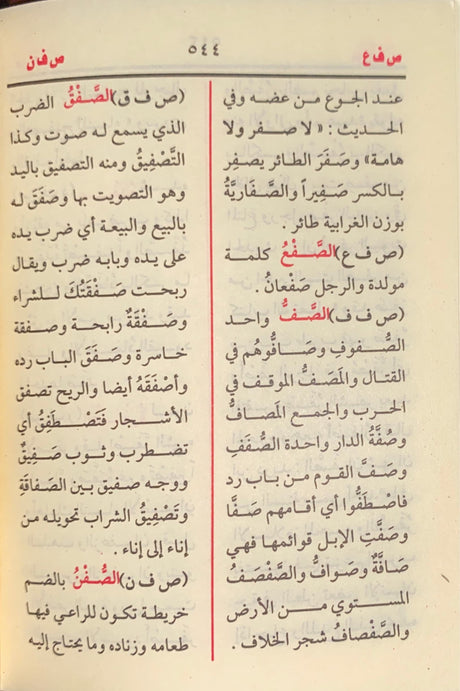 ص ف ع
٥٤٤
ص ف ن
عند الجوع من عضه وفي
الحديث : « لا صفر ولا
هامة» وصَفَرَ الطائر يصفِر
بالكسر صَفِيراً والصَّفَارِيَّةُ
بوزن الغرابية طائر .
(ص ف ع) الصَّفْعُ كلمة
مولدة والرجل صَفْعانُ .
(ص ف ف) الصَّفُّ واحد
الصُّفوفِ وصَافُّوهُم في
القتال والمَصَفُّ الموقف في
الحرب والجمع المَصَافُّ
وصُفَّةُ الدار واحدة الصُّفَفِ
وصَفَّ القوم من باب رد
فاصْطَفُّوا أي أقامهم صَفًّا
وصَفَّتِ الإبل قوائمها فهي
صَافَّةٌ وصَوافُّ والصَّفْصَفُ
المستوي من الأرض
والصَّفْصافُ شجر الخلاف .
(ص ف ق) الصَّفْقُ الضرب
الذي يسمع له صوت وكذا
التَّصْفِيقُ ومنه التصفيق باليد
وهو التصويت بها وصَفَقَ له
بالبيع والبيعة أي ضرب يده
على يده وبابه ضرب ويقال
ربحت صَفْقَتُكَ للشراء
وصَفْقَةٌ رابحة وصفقة
خاسرة وصَفَقَ الباب رده
وأصْفَقَهُ أيضا والريح تصفق
الأشجار فَتَصْطَفِقُ أي
تضطرب وثوب صَفِيقٌ
ووجه صفيق بين الصَّفاقَةِ
وتَصْفِيقُ الشراب تحويله من
إناء إلى إناء .
(ص ف ن) الصُّفْنُ بالضم
خريطة تكون للراعي فيها
طعامه وزناده وما يحتاج إليه